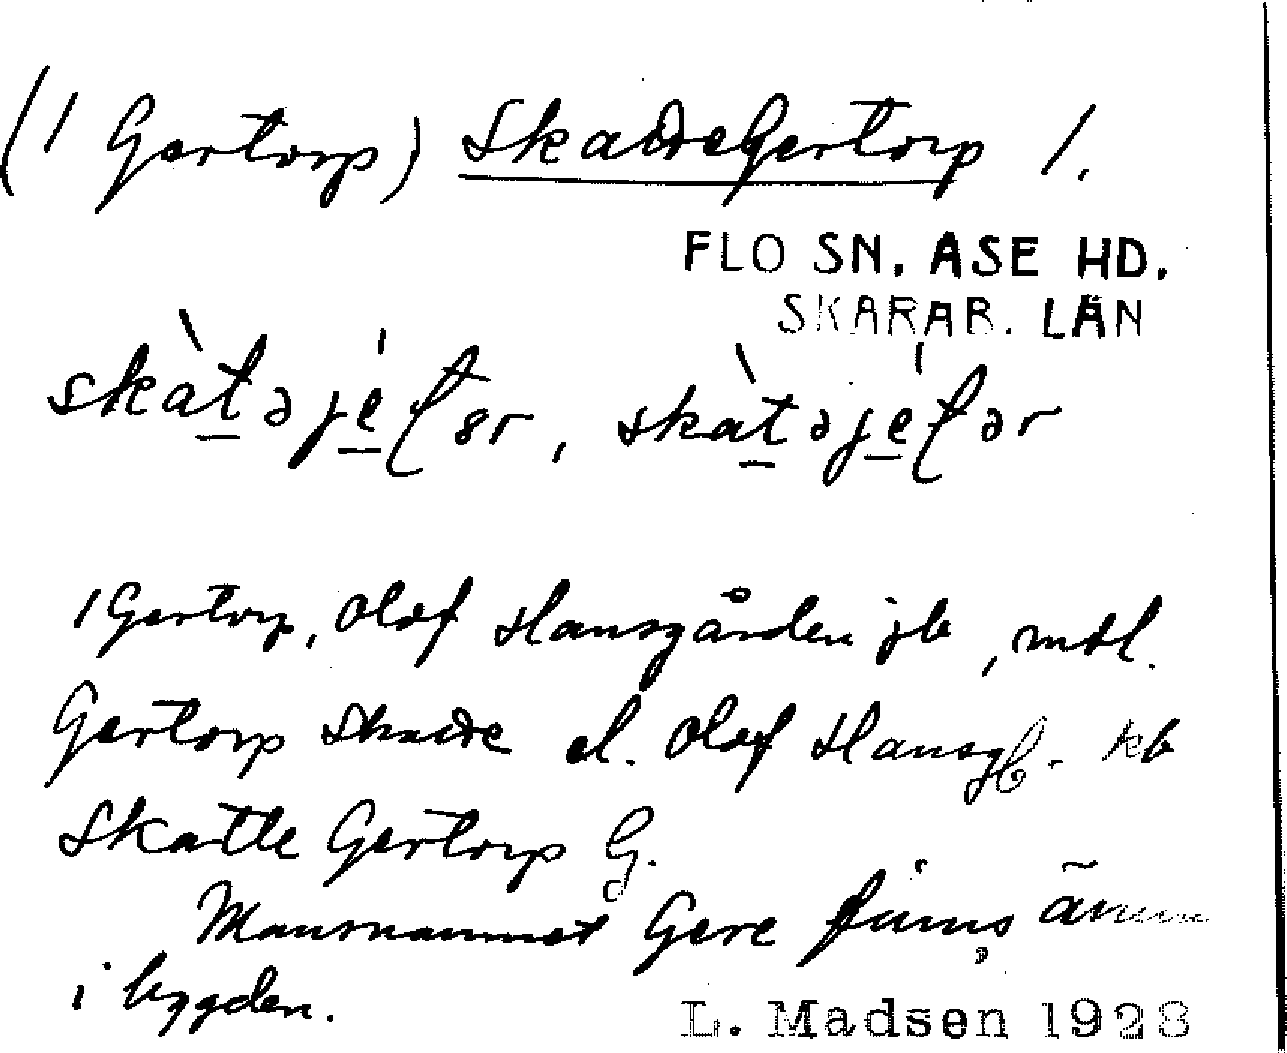 (1 Gertorp) Skattegertorp 1.
FLO SN. ASE HD.
SKARAB. LÄN
skàtəjétər, skàtəjétər
1 Gertorp, Olof Hansgården jb, mtl.
Gertorp Skatte el. Olof Hansg. kb
Skatte Gertorp G.
Mansnamnet Gere finns ännu
i bygden.
L. Madsen 1928